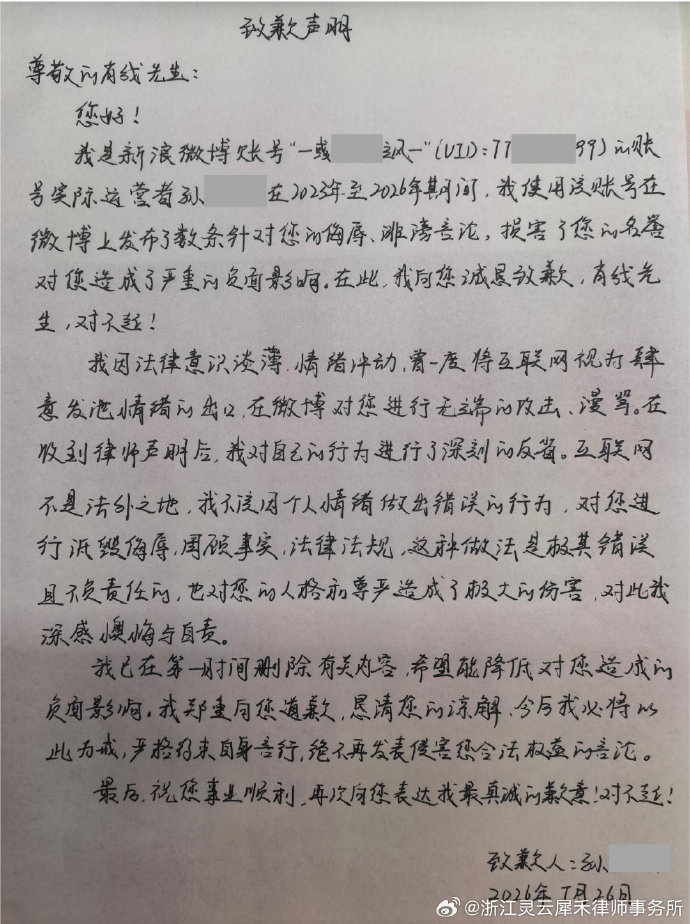 致歉声明
尊敬的有线先生：
您好！
我是新浪微博账号“一或 立风一”（UID：77 99）的账
号实际运营者孙 在2023年至2026年期间，我使用该账号在
微博上发布了数条针对您的侮辱、诽谤言论，损害了您的名誉
对您造成了严重的负面影响。在此，我向您诚恳致歉，有线先
生，对不起！
我因法律意识淡薄、情绪冲动，曾一度将互联网视为肆
意发泄情绪的出口，在微博对您进行无端的攻击、谩骂。在
收到律师声明后，我对自己的行为进行了深刻的反省。互联网
不是法外之地，我不该因个人情绪做出错误的行为，对您进
行诋毁侮辱，罔顾事实，法律法规，这种做法是极其错误
且不负责任的，也对您的人格和尊严造成了极大的伤害，对此我
深感懊悔与自责。
我已在第一时间删除有关内容，希望能降低对您造成的
负面影响。我郑重向您道歉，恳请您的谅解、今后我必将以
此为戒，严格约束自身言行，绝不再发表侵害您合法权益的言论。
最后，祝您事业顺利，再次向您表达我最真诚的歉意！对不起！
致歉人：孙
2026年1月26日
@浙江灵云犀禾律师事务所